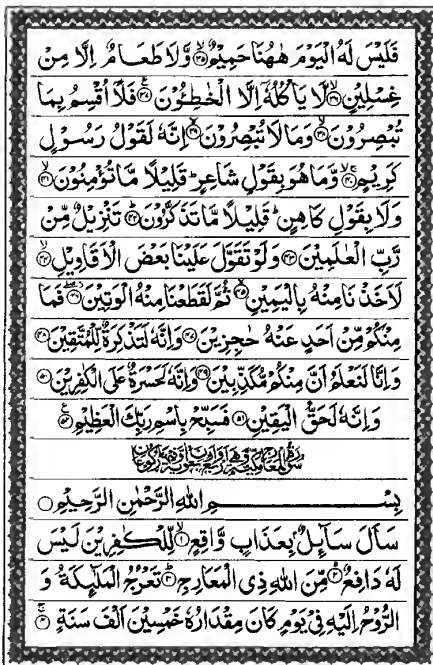 فَلَيْسَ لَهُ الْيَوْمَ هٰهُنَا حَمِيْمٌ ۝۳۵ وَّلَا طَعَامٌ اِلَّا مِنْ
غِسْلِيْنٍ ۝۳۶ لَّا يَاْكُلُهٗۤ اِلَّا الْخٰطِـُٔوْنَ ۝۳۷ فَلَاۤ اُقْسِمُ بِمَا
تُبْصِرُوْنَ ۝۳۸ وَمَا لَا تُبْصِرُوْنَ ۝۳۹ اِنَّهٗ لَقَوْلُ رَسُوْلٍ
كَرِيْمٍ ۝۴۰ وَّمَا هُوَ بِقَوْلِ شَاعِرٍ ؕ قَلِيْلًا مَّا تُؤْمِنُوْنَ ۝۴۱
وَلَا بِقَوْلِ كَاهِنٍ ؕ قَلِيْلًا مَّا تَذَكَّرُوْنَ ۝۴۲ تَنْزِيْلٌ مِّنْ
رَّبِّ الْعٰلَمِيْنَ ۝۴۳ وَلَوْ تَقَوَّلَ عَلَيْنَا بَعْضَ الْاَقَاوِيْلِ ۝۴۴
لَاَخَذْنَا مِنْهُ بِالْيَمِيْنِ ۝۴۵ ثُمَّ لَقَطَعْنَا مِنْهُ الْوَتِيْنَ ۝۴۶ فَمَا
مِنْكُمْ مِّنْ اَحَدٍ عَنْهُ حٰجِزِيْنَ ۝۴۷ وَاِنَّهٗ لَتَذْكِرَةٌ لِّلْمُتَّقِيْنَ ۝۴۸
وَاِنَّا لَنَعْلَمُ اَنَّ مِنْكُمْ مُّكَذِّبِيْنَ ۝۴۹ وَاِنَّهٗ لَحَسْرَةٌ عَلَى الْكٰفِرِيْنَ ۝۵۰
وَاِنَّهٗ لَحَقُّ الْيَقِيْنِ ۝۵۱ فَسَبِّحْ بِاسْمِ رَبِّكَ الْعَظِيْمِ ۝۵۲
بِسْمِ اللهِ الرَّحْمٰنِ الرَّحِيْمِ ۝
سَاَلَ سَآئِلٌۢ بِعَذَابٍ وَّاقِعٍ ۝۱ لِّلْكٰفِرِيْنَ لَيْسَ
لَهٗ دَافِعٌ ۝۲ مِّنَ اللهِ ذِى الْمَعَارِجِ ۝۳ تَعْرُجُ الْمَلٰٓئِكَةُ وَ
الرُّوْحُ اِلَيْهِ فِيْ يَوْمٍ كَانَ مِقْدَارُهٗ خَمْسِيْنَ اَلْفَ سَنَةٍ ۝۴